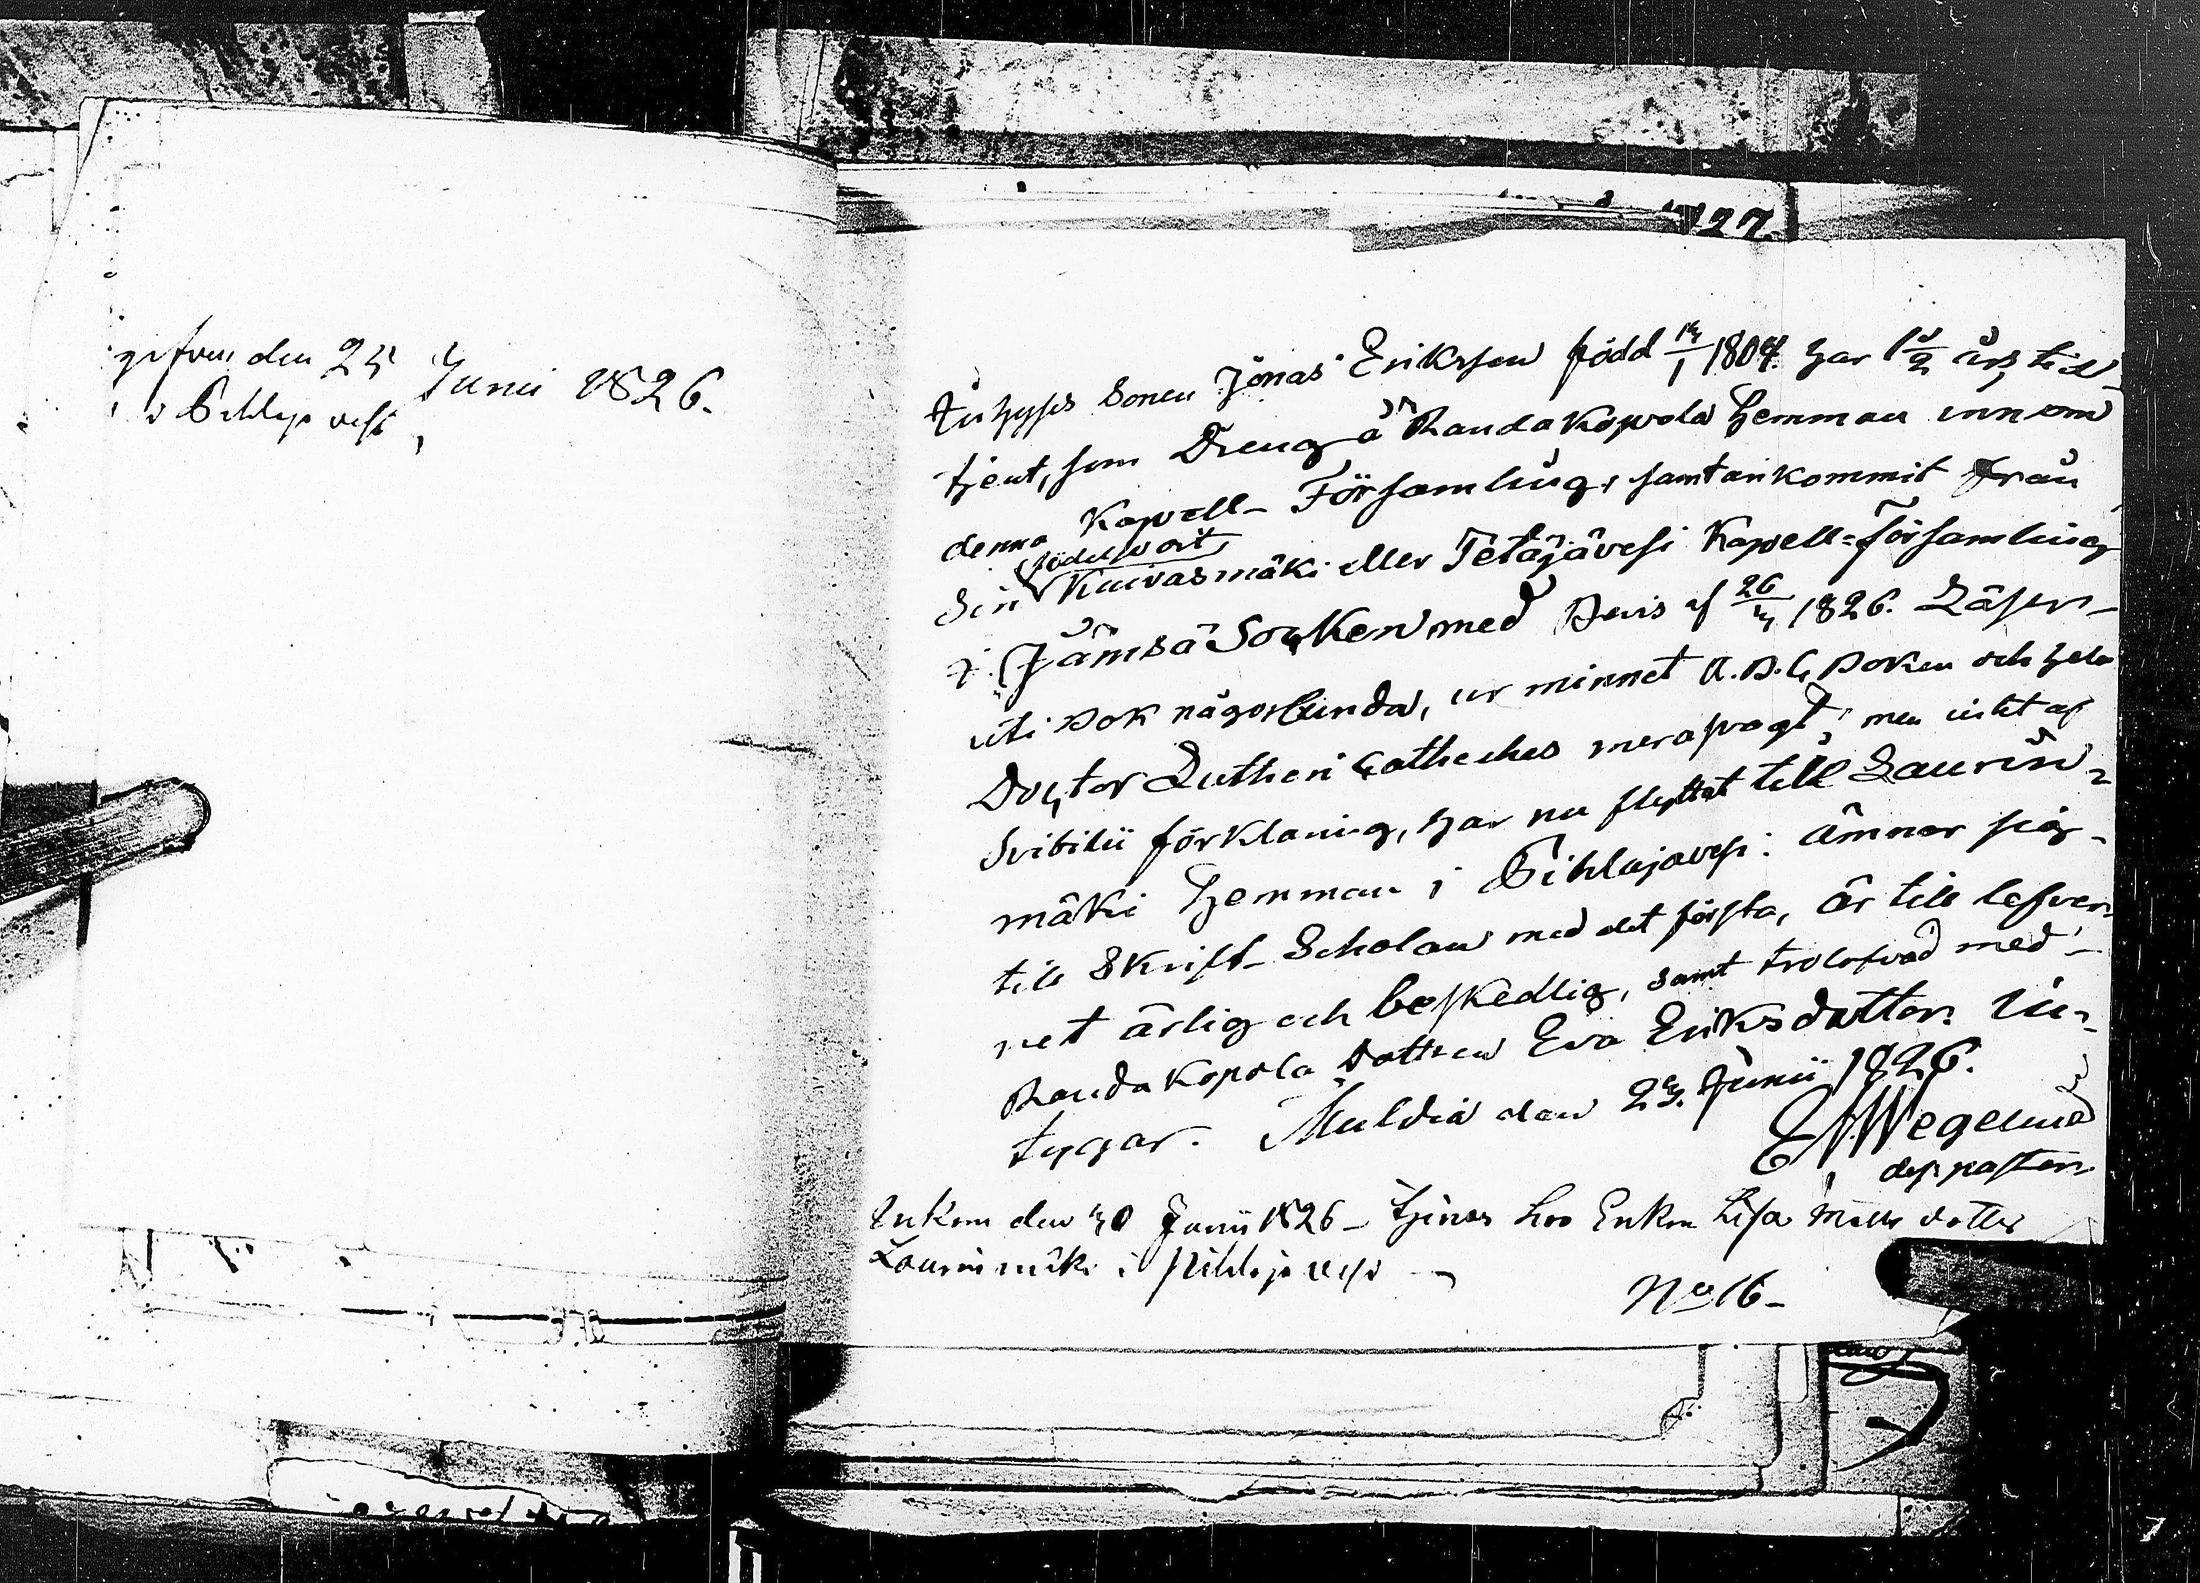 den 25 Junii 1826.
127.
Inhyses Sonen Jonas Eriksson född 1/1 1804. har 1 1/2 års tid
tjent, som Dreng å Randakopola Hemman innom
denna Kapell-Församling, samt ankommit från
födelseort
Sin Kuivasmäki eller Petäjävesi Kapell=församling
i Jämsä Socken med Bevis af 26/3 1826. Läser
uti Bok någorlunda, ur minnet A.B.C. Boken och hela
Doctor Lutheri Catheches merasvagt, men intet af
Svibilii förklaring, har nu flyttat till Laurin-
mäki Hemman i Pihlajavesi: ämnar sig
till Skrift-Scholan med det första, är till lefver-
net ärlig och beskedlig, samt trolofvad med
Randakopola Dottren Eva Eriksdotter. In-
tygar. Muldia den 23. Junii 1826.
Wegelius
Inkom den 30 Junii 1826 - tjenar hos Enkan Lisa Matts dotter
Laurinmäki i Pihlajavesi
No 16-